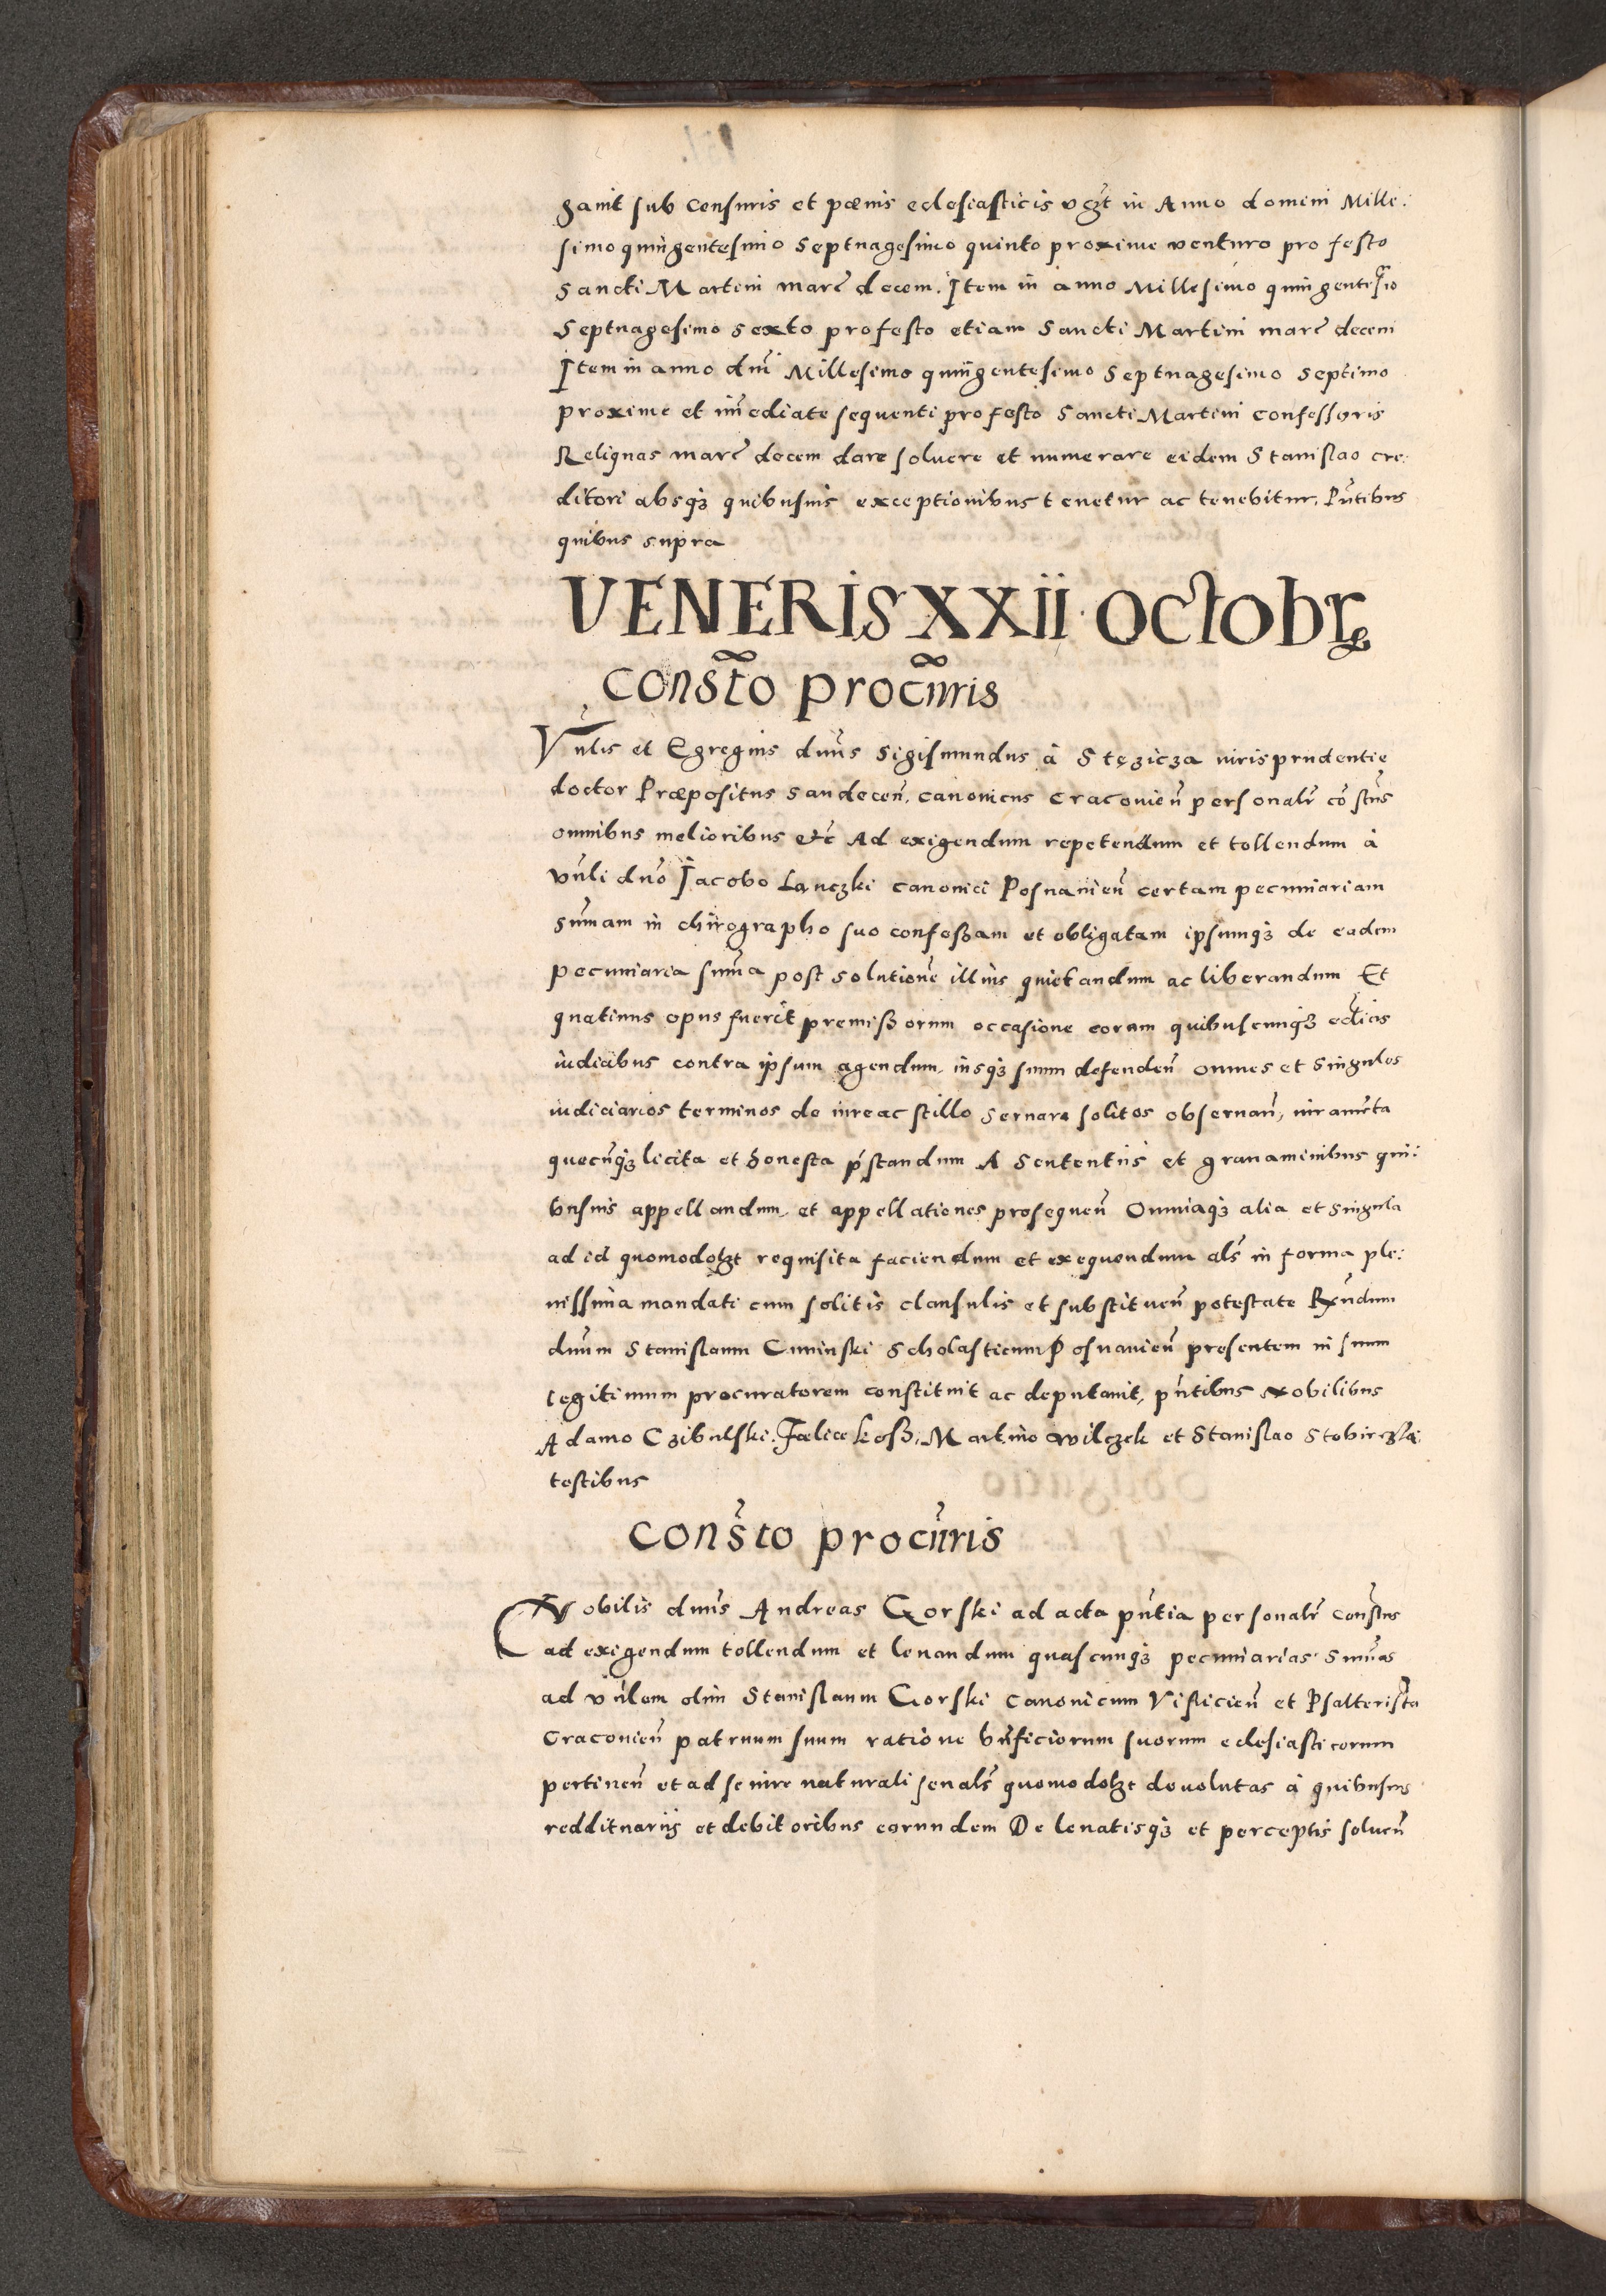 gauit sub censuris et pœnis eclesiasticis vꝫt in Anno domini Mille:
simo quingentesimo Septuagesimo quinto proxime venturo pro festo
Sancti Martini marc̃ decem. Item in anno Millesimo quingentesĩo
Septuagesimo sexto pro festo etiam Sancti Martini marc̃ decem
Item in anno dnĩ Millesimo quingentesimo Septuagesimo septimo
proxime et im̃ediate sequenti pro festo Sancti Martini confessoris
Reliquas marc̃ decem dare soluere et numerare eidem Stanislao cre:
ditori absqꝫ quibusuis exceptionibus tenetur ac tenebitur, Pñtibus
quibus supra
VENERIS XXII OCTOBR
Consto͂ procuris͂
Vnlis̃ et Egregius dnũs Sigismundus à Stęzicza iurisprudentię
doctor Præpositus Sandeceñ, canonicus Cracouieñ personalr̃ cõstns̃
omnibus melioribus etc̃ Ad exigendum repetendum et tollendum à
vnl̃i dnõ Iacobo Lanczki canonici Posnanieñ certam pecuniariam
sum̃am in chirographo suo confeßam et obligatam ipsumqꝫ de eadem
pecuniaria sum̃a post solutionẽ illius quietandum ac liberandum Et
quatinus opus fuerit premißorum occasione coram quibuscunqꝫ ecl̃icis
iudicibus contra ipsum agendum, iusqꝫ suum defendeñ omnes et singulos
iudiciarios terminos de iure ac stillo seruari solitos obseruañ, iuramẽta
quecũqꝫ licita et honesta p̃standum A sententiis et grauaminibus qui:
busuis appellandum, et appellationes prosequeñ Omniaqꝫ alia et singula
ad id quomodolꝫt requisita faciendum et exequendum als̃ in forma ple:
nissima mandati cum solitis clausulis et substitueñ potestate Rx̃ndum
dnum Stanislaum Cuninski Scholasticum Posnanieñ presentem in suum
legitimum procuratorem constituit ac deputauit, pñtibus Nobilibus
Adamo Czibulski, Fœlice koß, Martino wilczek et Stanislao
testibus
Cons̃to procur̃is
Nobilis dnũs Andreas Gorski ad acta pñtia personalr̃ constñs
ad exigendum tollendum et leuandum quascunqꝫ pecuniarias sum̃as
ad vñlem olim Stanislaum Gorski canonicum Visliciẽn et Psalterista
Cracouieñ patruum suum ratione bñficiorum suorum eclesiasticorum
pertineñ et ad se iure naturali seu als̃ quomodolꝫt deuolutas à quibusuis
reddituariis et debitoribus eorundem De leuatisqꝫ et perceptis solueñ